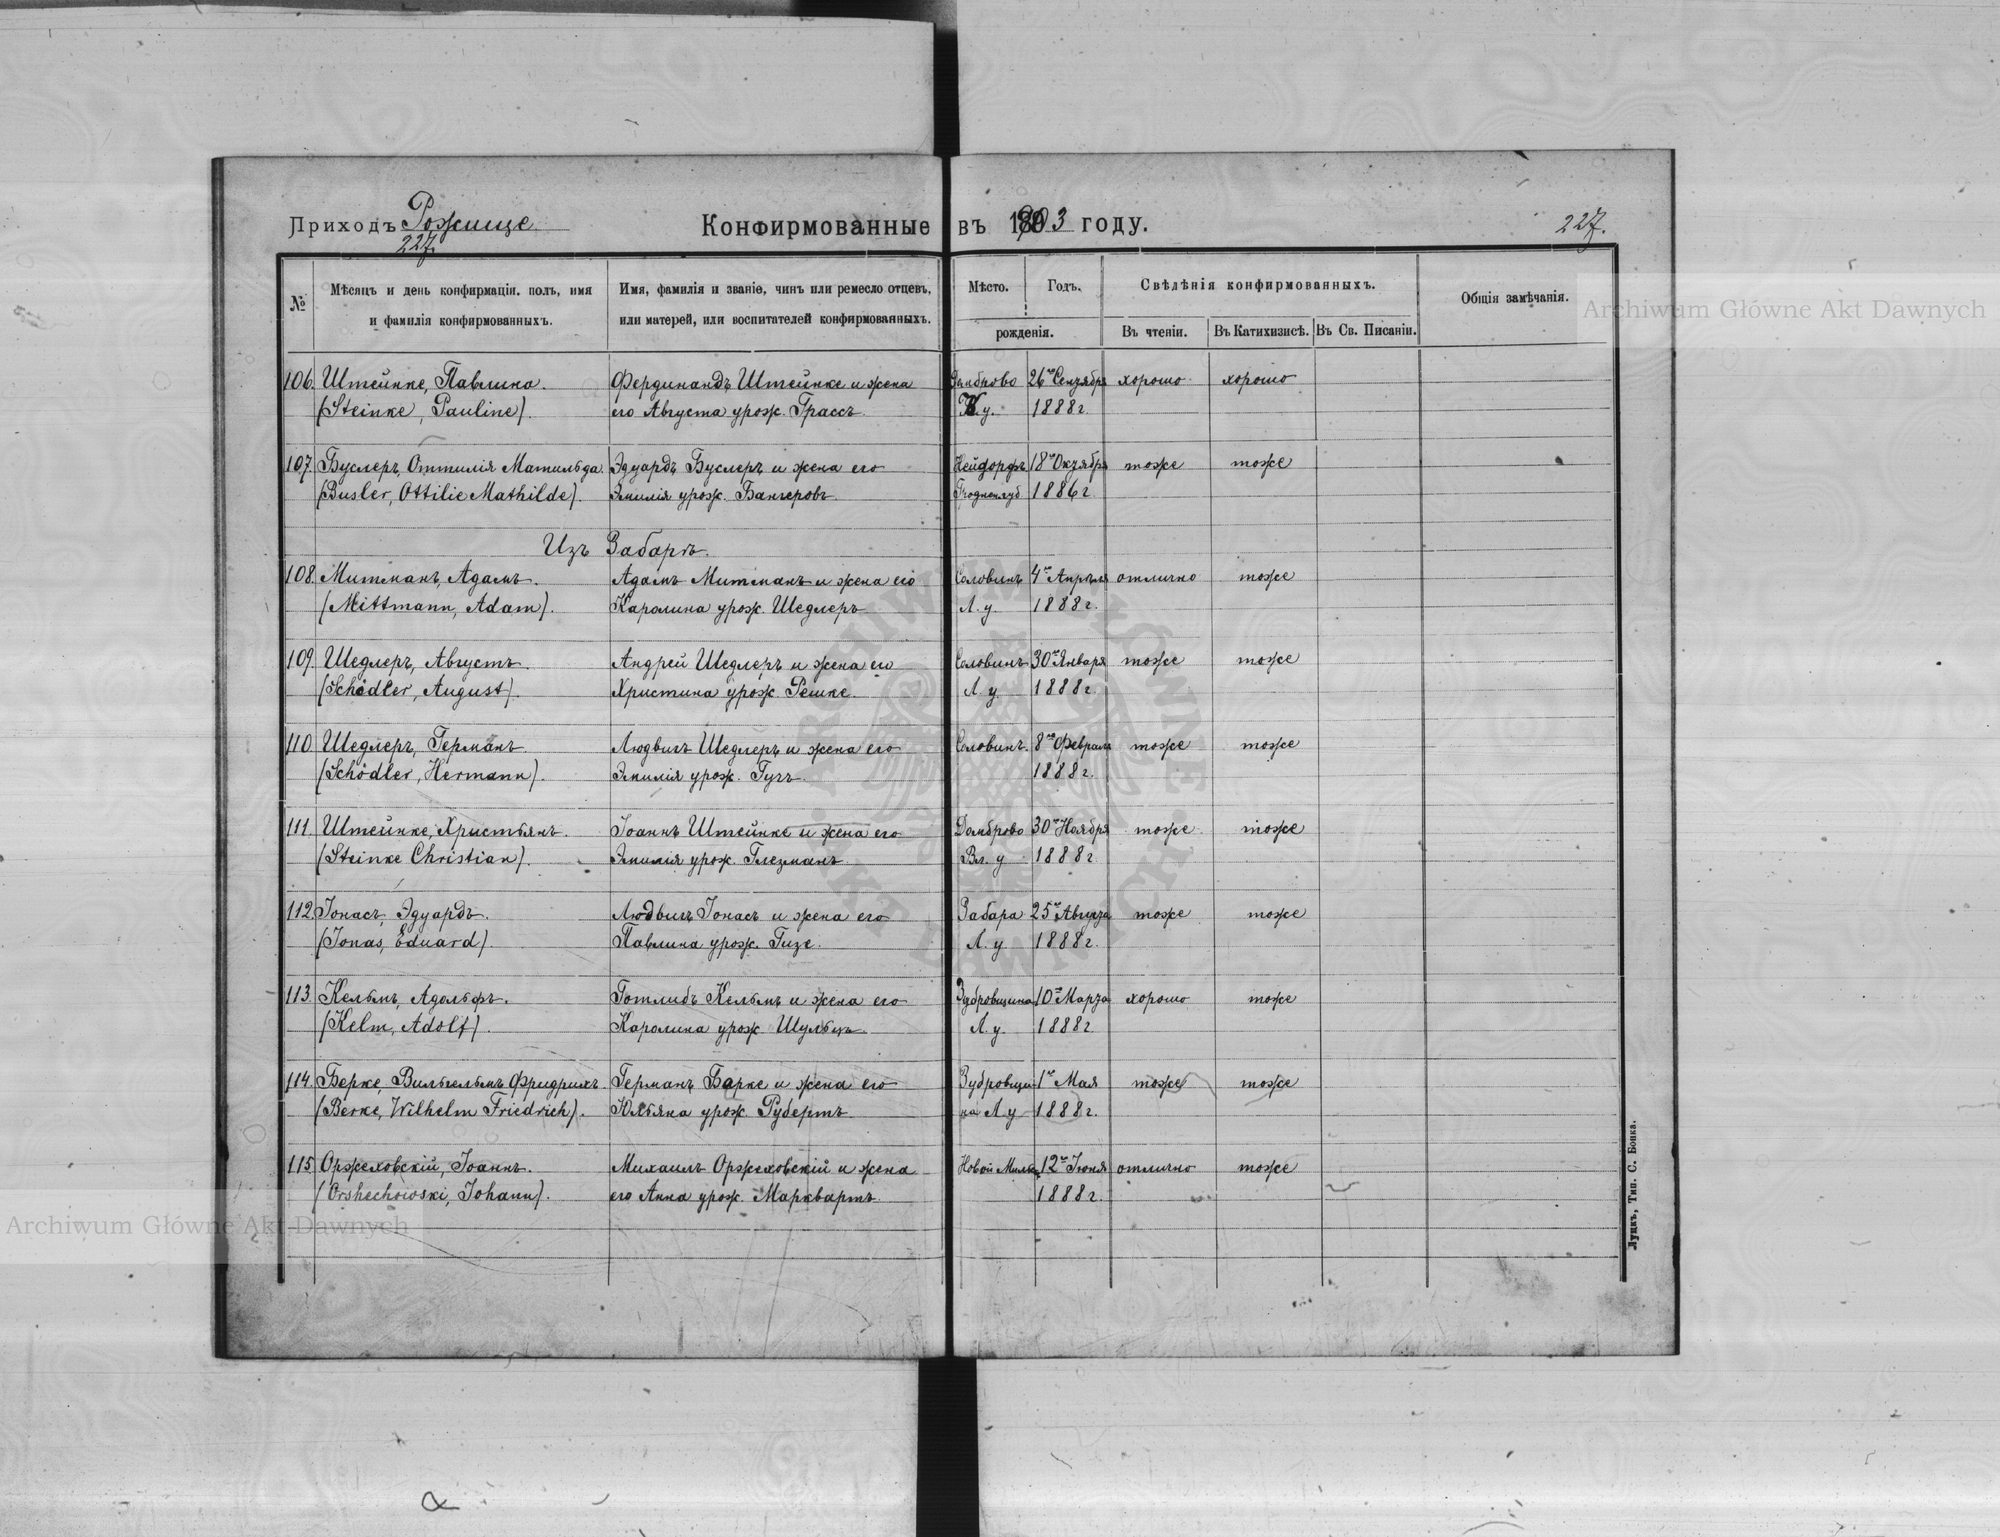 Приходъ Рожище
227.
Конфирмованные въ 1903 году.
227.
№
Мѣсяцъ и день конфирмаціи, полъ, имя и фамилія конфирмованныхъ.
Имя, фамилія и званіе, чинъ или ремесло отцевъ, или матерей, или воспитателей конфирмованныхъ.
Мѣсто. Годъ. рожденія.
Свѣдѣнія конфирмованныхъ.
Въ чтеніи. Въ Катихизисѣ. Въ Св. Писаніи.
Общія замѣчанія.
106. Штейнке, Павлина. Фердинандъ Штейнке и жена Домброво 26го Сентября хорошо хорошо
(Steinke, Pauline). его Августа урож. Грассъ В. у. 1888 г.
107. Буслеръ, Оттилія Матильда. Эдуардъ Буслеръ и жена его Нейдорфъ 18го Октября тоже тоже
(Busler, Ottilie Mathilde). Эмилія урож. Бангеровъ Гроднен. губ 1886 г.
Изъ Забаръ.
108. Митманъ, Адамъ. Адамъ Митманъ и жена его Соловинъ 4го Апрѣля отлично тоже
(Mittmann, Adam). Каролина урож. Шедлеръ Л. у. 1888 г.
109. Шедлеръ, Августъ. Андрей Шедлеръ и жена его Соловинъ 30го Января тоже тоже
(Schödler, August). Христина урож. Решке. Л. у. 1888 г.
110. Шедлеръ, Германъ Людвигъ Шедлеръ и жена его Соловинъ. 8го Февраля тоже тоже
(Schödler, Hermann). Эмилія урож. Гучъ 1888 г.
111. Штейнке, Христьянъ. Іоаннъ Штейнке и жена его Домброво 30го Ноября тоже тоже
(Steinke Christian). Эмилія урож. Глезманъ. Вл. у 1888 г
112. Іонасъ, Эдуардъ. Людвигъ Іонасъ и жена его Забара 25го Августа тоже тоже
(Jonas, Eduard). Павлина урож. Гизе. Л. у 1888 г.
113. Кельмъ, Адольфъ. Готлибъ Кельмъ и жена его Зубровщина 10го Марта хорошо тоже
(Kelm, Adolf). Каролина урож Шульцъ. Л. у 1888 г
114. Берке, Вильгельмъ Фридрихъ. Германъ Барке и жена его Зубровщи- 1го Мая тоже тоже
(Berke, Wilhelm Friedrich). Юльяна урож. Рубертъ на Л. у 1888 г.
115. Оржеховскій, Іоаннъ. Михаилъ Оржеховскій и жена 12го Іюня отлично тоже
(Orshechowski, Johann). его Анна урож. Марквартъ. 1888 г
Луцкъ, Тип. С. Бонка.
Archiwum Główne Akt Dawnych
Archiwum Główne Akt Dawnych
ARCHIWUM GŁÓWNE AKT DAWNYCH